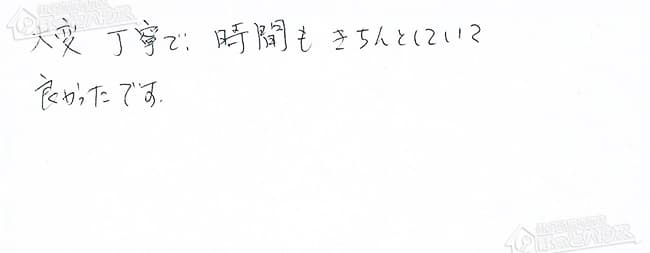 大変 丁寧で、時間も きちんとしていて
良かったです。